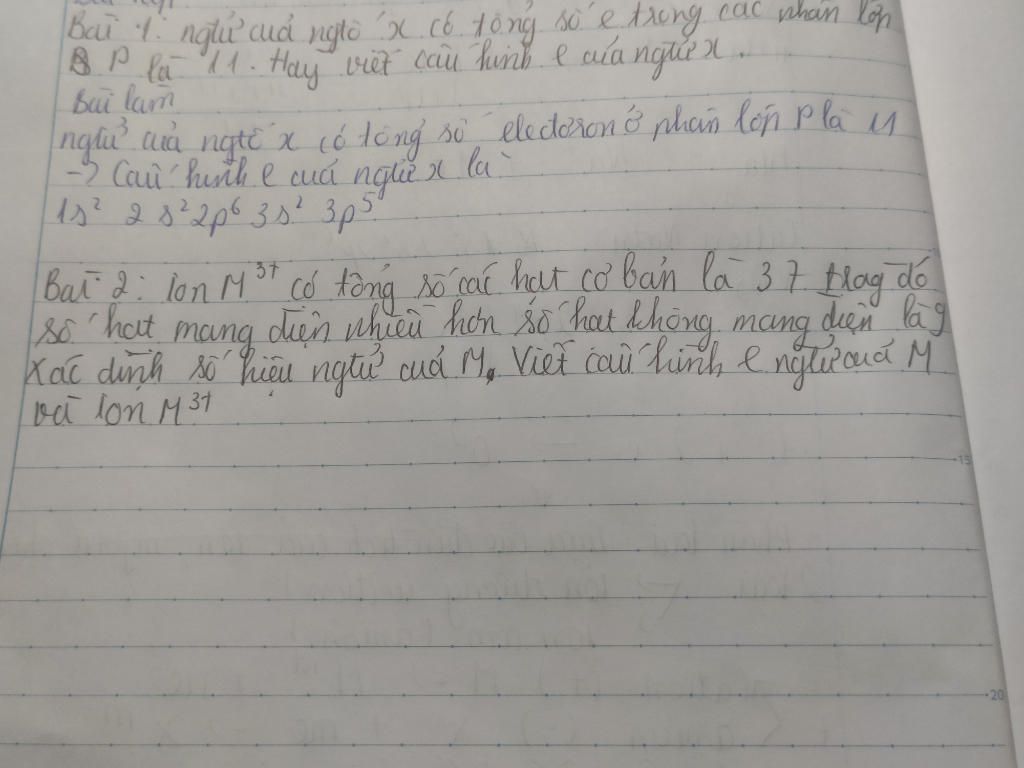 Bài 1: ngtử của ngtố x có tổng số e trong các phân lớp
P là 11. Hãy viết cấu hình e của ngtử x.
Bài làm
ngtử của ngtố x có tổng số electoson ở phân lớp P là 11
-> Cấu hình e của ngtử x là
1s² 2s² 2p⁶ 3s² 3p⁵
Bài 2: Ion M³⁺ có tổng số các hạt cơ bản là 37 trog đó
số hạt mang điện nhiều hơn số hạt không mang điện là 9
Xác định số hiệu ngtử của M. Viết cấu hình e ngtử của M
và Ion M³⁺
15
20